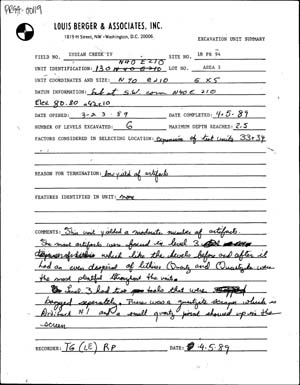 PR94-0019
LOUIS BERGER & ASSOCIATES, INC.
1819 H Street, NW · Washington, D.C. 20006
EXCAVATION UNIT SUMMARY
FIELD NO. INDIAN CREEK IV SITE NO. 18 PR 94
N40 E210
UNIT IDENTIFICATION: 130 LOT NO. AREA 3
UNIT COORDINATES AND SIZE: N 40 E 210 5 X 5
DATUM INFORMATION: at SW corn N40 E 210
80.80
DATE OPENED: 3-23-89 DATE COMPLETED: 4-5-89
NUMBER OF LEVELS EXCAVATED: 6 MAXIMUM DEPTH REACHED: 2.5
FACTORS CONSIDERED IN SELECTING LOCATION: expansion of test units 33+34
REASON FOR TERMINATION: low yield of artifacts
FEATURES IDENTIFIED IN UNIT: none
COMMENTS: This unit yielded a moderate number of artifacts.
The most artifacts were found in level 3
which like the levels before and after it
had an even of lithics Quartz and Quartzite were
the most plentiful throughout the unit.
Level 3 had two tools that were
bagged seperately. There was a quartzite scraper which is
Artifact Nº 1 and a small quartz point showed up in the
screen
RECORDER: TG (LE) RP DATE: 4-5-89